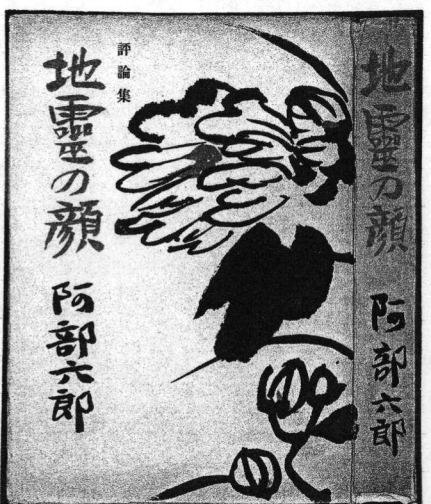 評論集
地靈の顔
阿部六郎
地靈の顔
阿部六郎